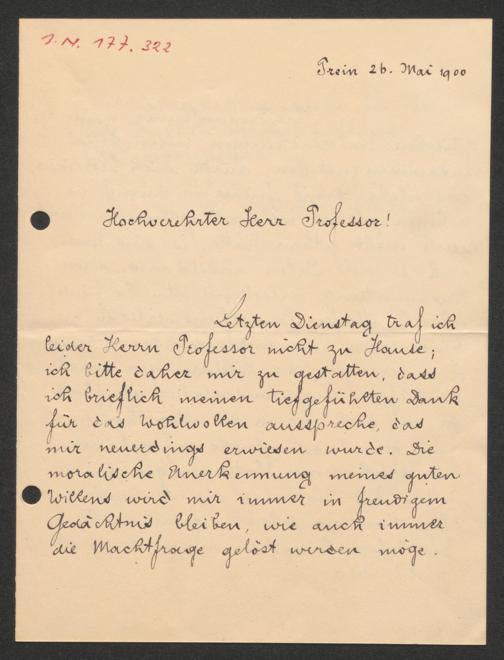 J.N. 177.322
Prein 26. Mai 1900
Hochverehrter Herr Professor!
Letzten Dienstag traf ich
leider Herrn Professor nicht zu Hause;
ich bitte daher mir zu gestatten, dass
ich brieflich meinen tiefgefühlten Dank
für das Wohlwollen ausspreche, das
mir neuerdings erwiesen wurde. Die
moralische Anerkennung meines guten
Willens wird mir immer in freudigem
Gedächtnis bleiben, wie auch immer
die Machtfrage gelöst werden möge.